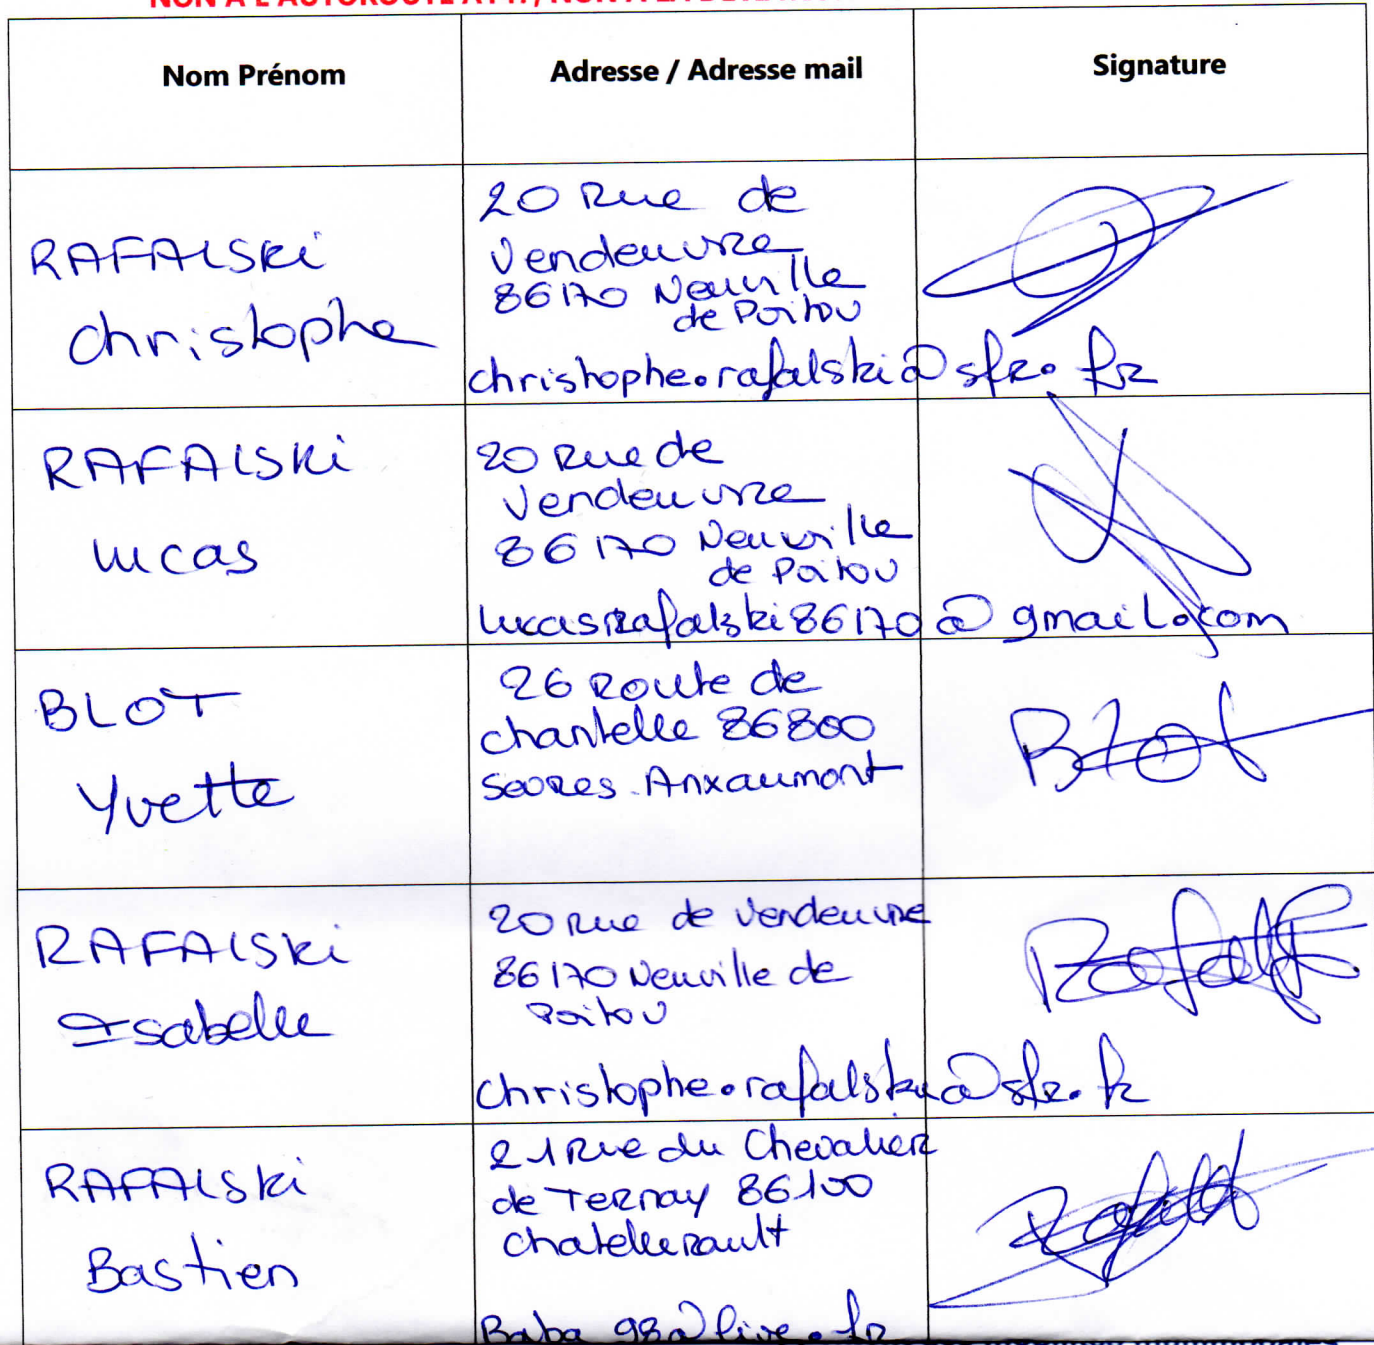 NON À L'AUTOROUTE A147, NON À LA
Nom Prénom
Adresse / Adresse mail
Signature
RAFALSKi
christophe
20 Rue de
Vendeuvre
86170 Neuville
de Poitou
christophe.rafalski@sfr.fr
RAFALSKi
lucas
20 Rue de
Vendeuvre
86170 Neuville
de Poitou
lucasrafalski86170@gmail.com
BLOT
Yvette
26 Route de
chantelle 86800
Sevres Anxaumont
Blot
RAFALSKi
Isabelle
20 rue de Vendeuvre
86170 Neuville de
Poitou
christophe.rafalski@sfr.fr
RAFALSKi
Bastien
21 Rue du Chevalier
de Ternay 86100
chatellerault
Baba 98@live.fr